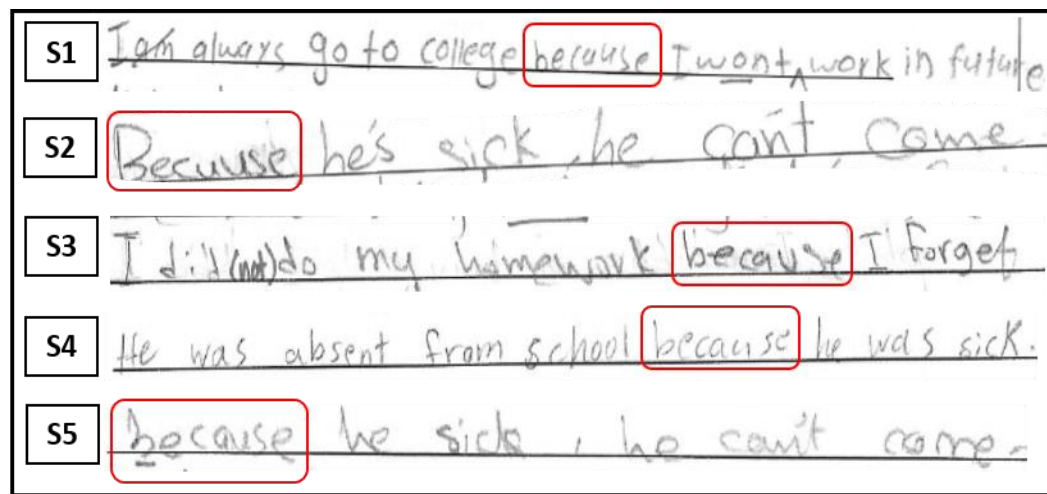 S1 I am always go to college because I wont work in future
S2 Becuuse he's sick, he can't come
S3 I did (not) do my homework because I forget
S4 He was absent from school because he was sick.
S5 because he sick, he can't come.